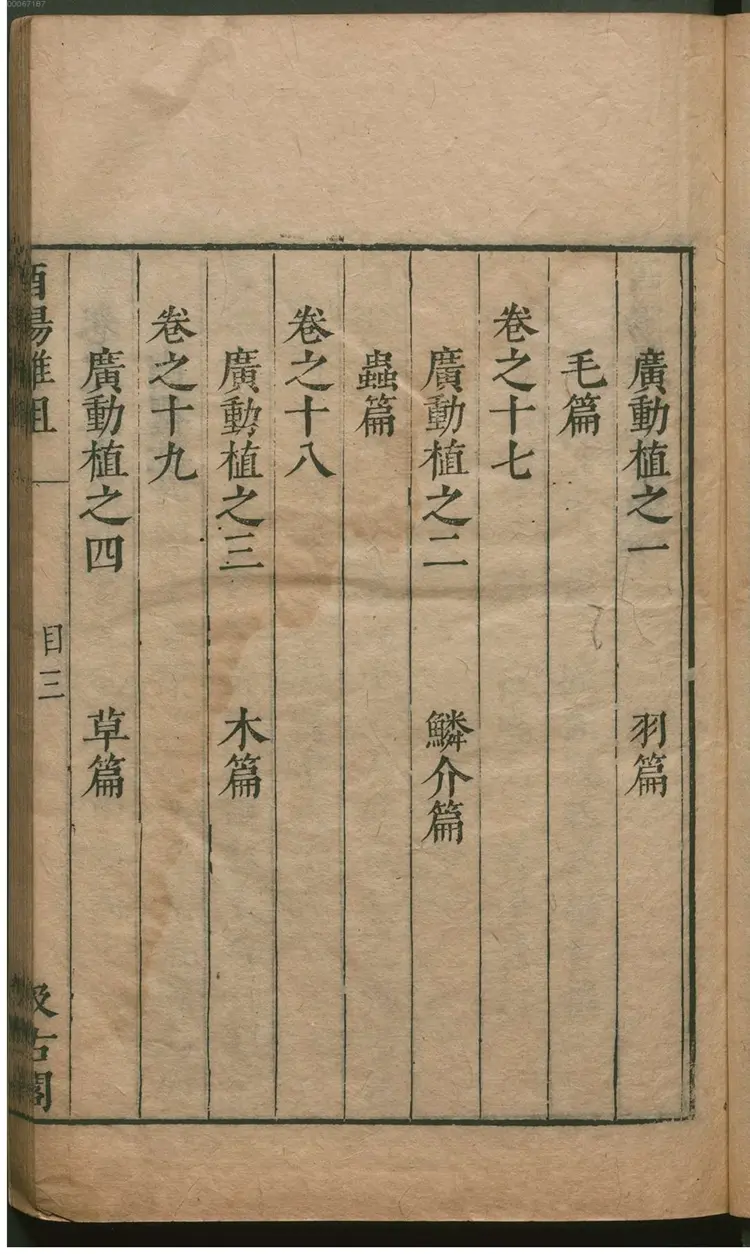 廣動植之一 羽篇
毛篇
卷之十七
廣動植之二 鱗介篇
蟲篇
卷之十八
廣動植之三 木篇
卷之十九
廣動植之四 草篇
酉陽雜俎 目三 汲古閣
00067167